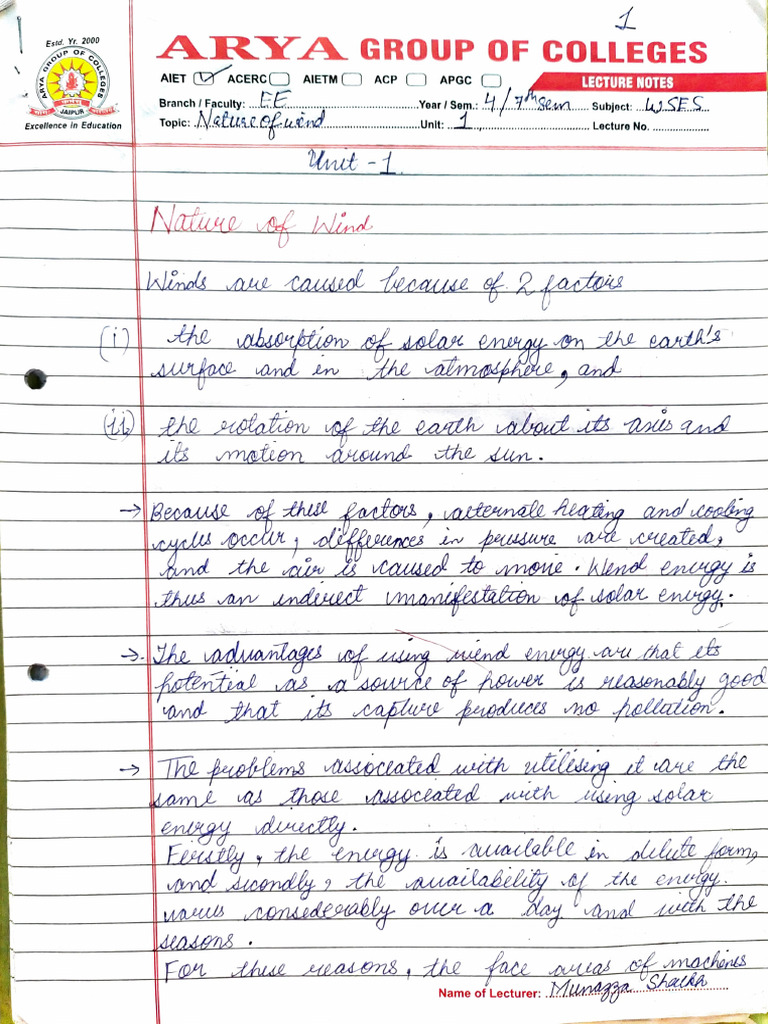 1
Estd. Yr. 2000
ARYA GROUP OF COLLEGES
JAIPUR
Excellence in Education
ARYA GROUP OF COLLEGES
AIET ✓ ACERC AIETM ACP APGC
LECTURE NOTES
Branch / Faculty: EE Year / Sem.: 4/7th sem Subject: WSES
Topic: Nature of wind Unit: 1 Lecture No.
Unit - 1
Nature of Wind
Winds are caused because of 2 factors
(i) the absorption of solar energy on the earth's
surface and in the atmosphere, and
(ii) the rotation of the earth about its axis and
its motion around the sun.
→ Because of these factors, alternate heating and cooling
cycles occur, differences in pressure are created,
and the air is caused to move. Wind energy is
thus an indirect manifestation of solar energy.
→ The advantages of using wind energy are that its
potential as a source of power is reasonably good
and that its capture produces no pollution.
→ The problems associated with utilising it are the
same as those associated with using solar
energy directly.
Firstly, the energy is available in dilute form,
and secondly, the availability of the energy
varies considerably over a day and with the
seasons.
For these reasons, the face areas of machines
Name of Lecturer: Munazza Shaikh